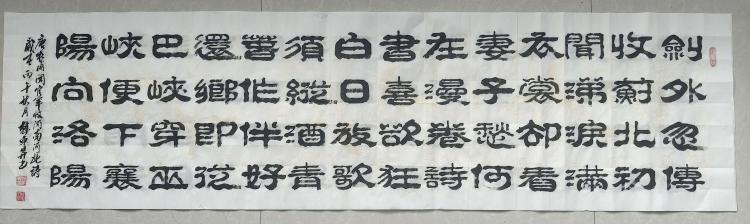 劍外忽傳
收薊北初
聞涕淚滿
衣裳却看
妻子愁何
在漫卷詩
書喜欲狂
白日放歌
須縱酒青
春作伴好
還鄉即從
巴峽穿巫
峽便下襄
陽向洛陽
唐杜甫聞官軍收河南河北詩
秋月